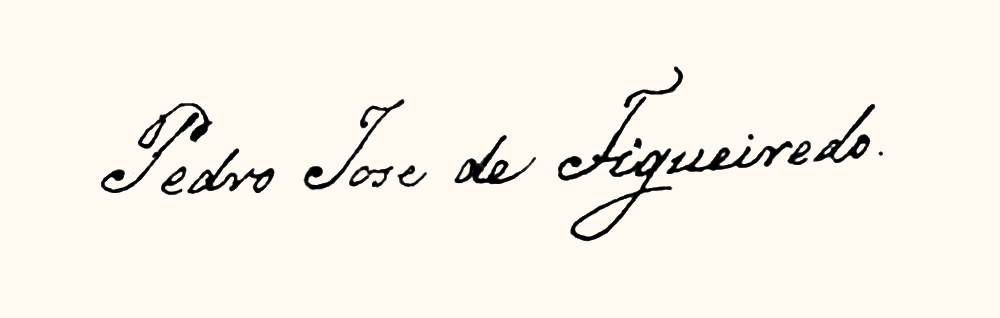 Pedro Jose de Figueiredo.